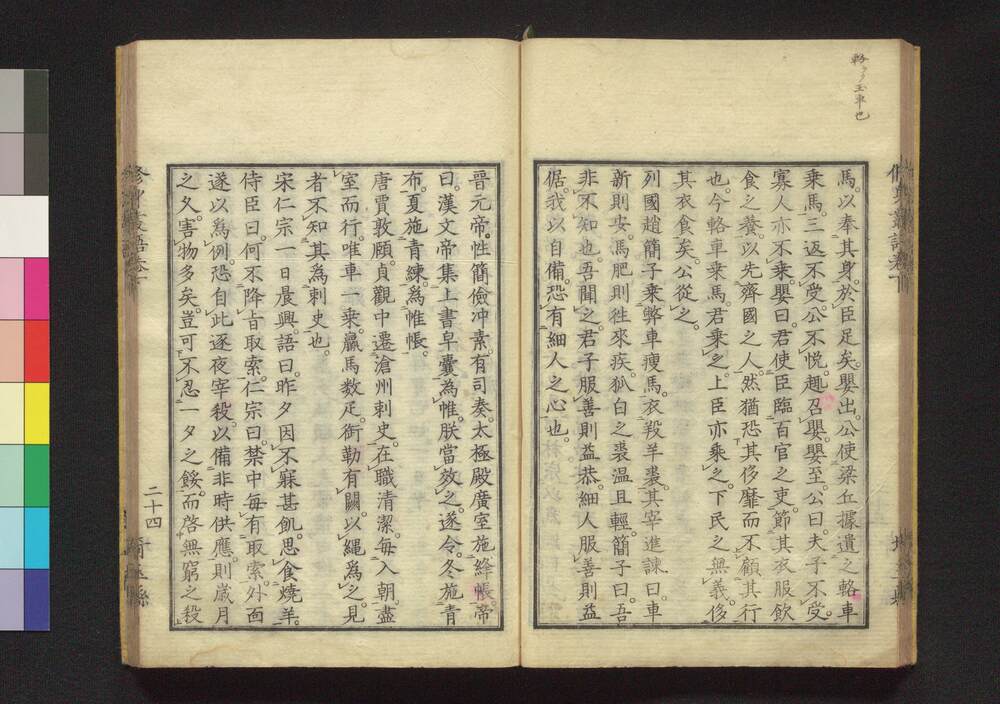 馬。以奉其身。於臣足矣。嬰出。公使梁丘據遺之輅車
乘馬。三返不受。公不悅。趣召嬰。嬰至。公曰。夫子不受。
寡人亦不乘。嬰曰。君使臣臨百官之吏。節其衣服飲
食之養。以先齊國之人。然猶恐其侈靡而不顧其行
也。今輅車乘馬。君乘之上。臣亦乘之下。民之無義。侈
其衣食矣。公從之。
列國趙簡子乘弊車瘦馬。衣羖羊裘。其宰進諫曰。車
新則安。馬肥則往來疾。狐白之裘温且輕。簡子曰。吾
非不知也。吾聞之。君子服善則益恭。細人服善則益
倨。我以自備。恐有細人之心也。
晉元帝。性簡儉冲素。有司奏。太極殿廣室施絳帳。帝
曰。漢文帝集上書皁囊為帷。朕當效之。遂令。冬施青
布。夏施青練。為帷帳。
唐賈敦頤。貞觀中遷滄州刺史。在職清潔。每入朝。盡
室而行。唯車一乘。羸馬数疋。銜勒有闕。以繩為之。見
者不知其為刺史也。
宋仁宗一日晨興。語曰。昨夕因不寐甚飢。思食燒羊。
侍臣曰。何不降旨取索。仁宗曰。禁中毎有取索。外面
遂以為例。恐自此逐夜宰殺。以備非時供應。則歲月
之久。害物多矣。豈可不忍一夕之餒。而啓無窮之殺
二十四